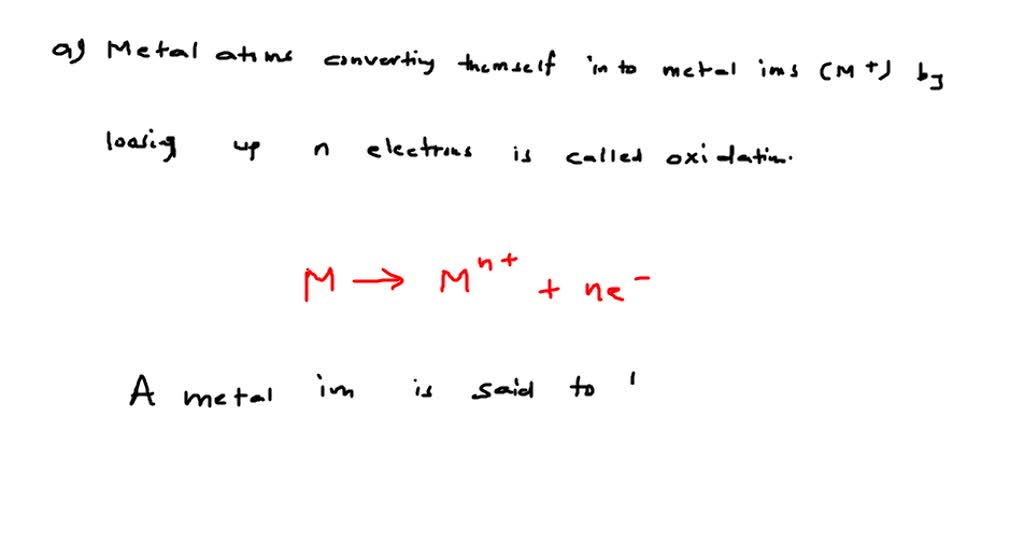 a) Metal atoms converting themself in to metal ions (M+) by
loosing up n electrons is called oxidation.
M → Mⁿ⁺ + ne⁻
A metal ion is said to